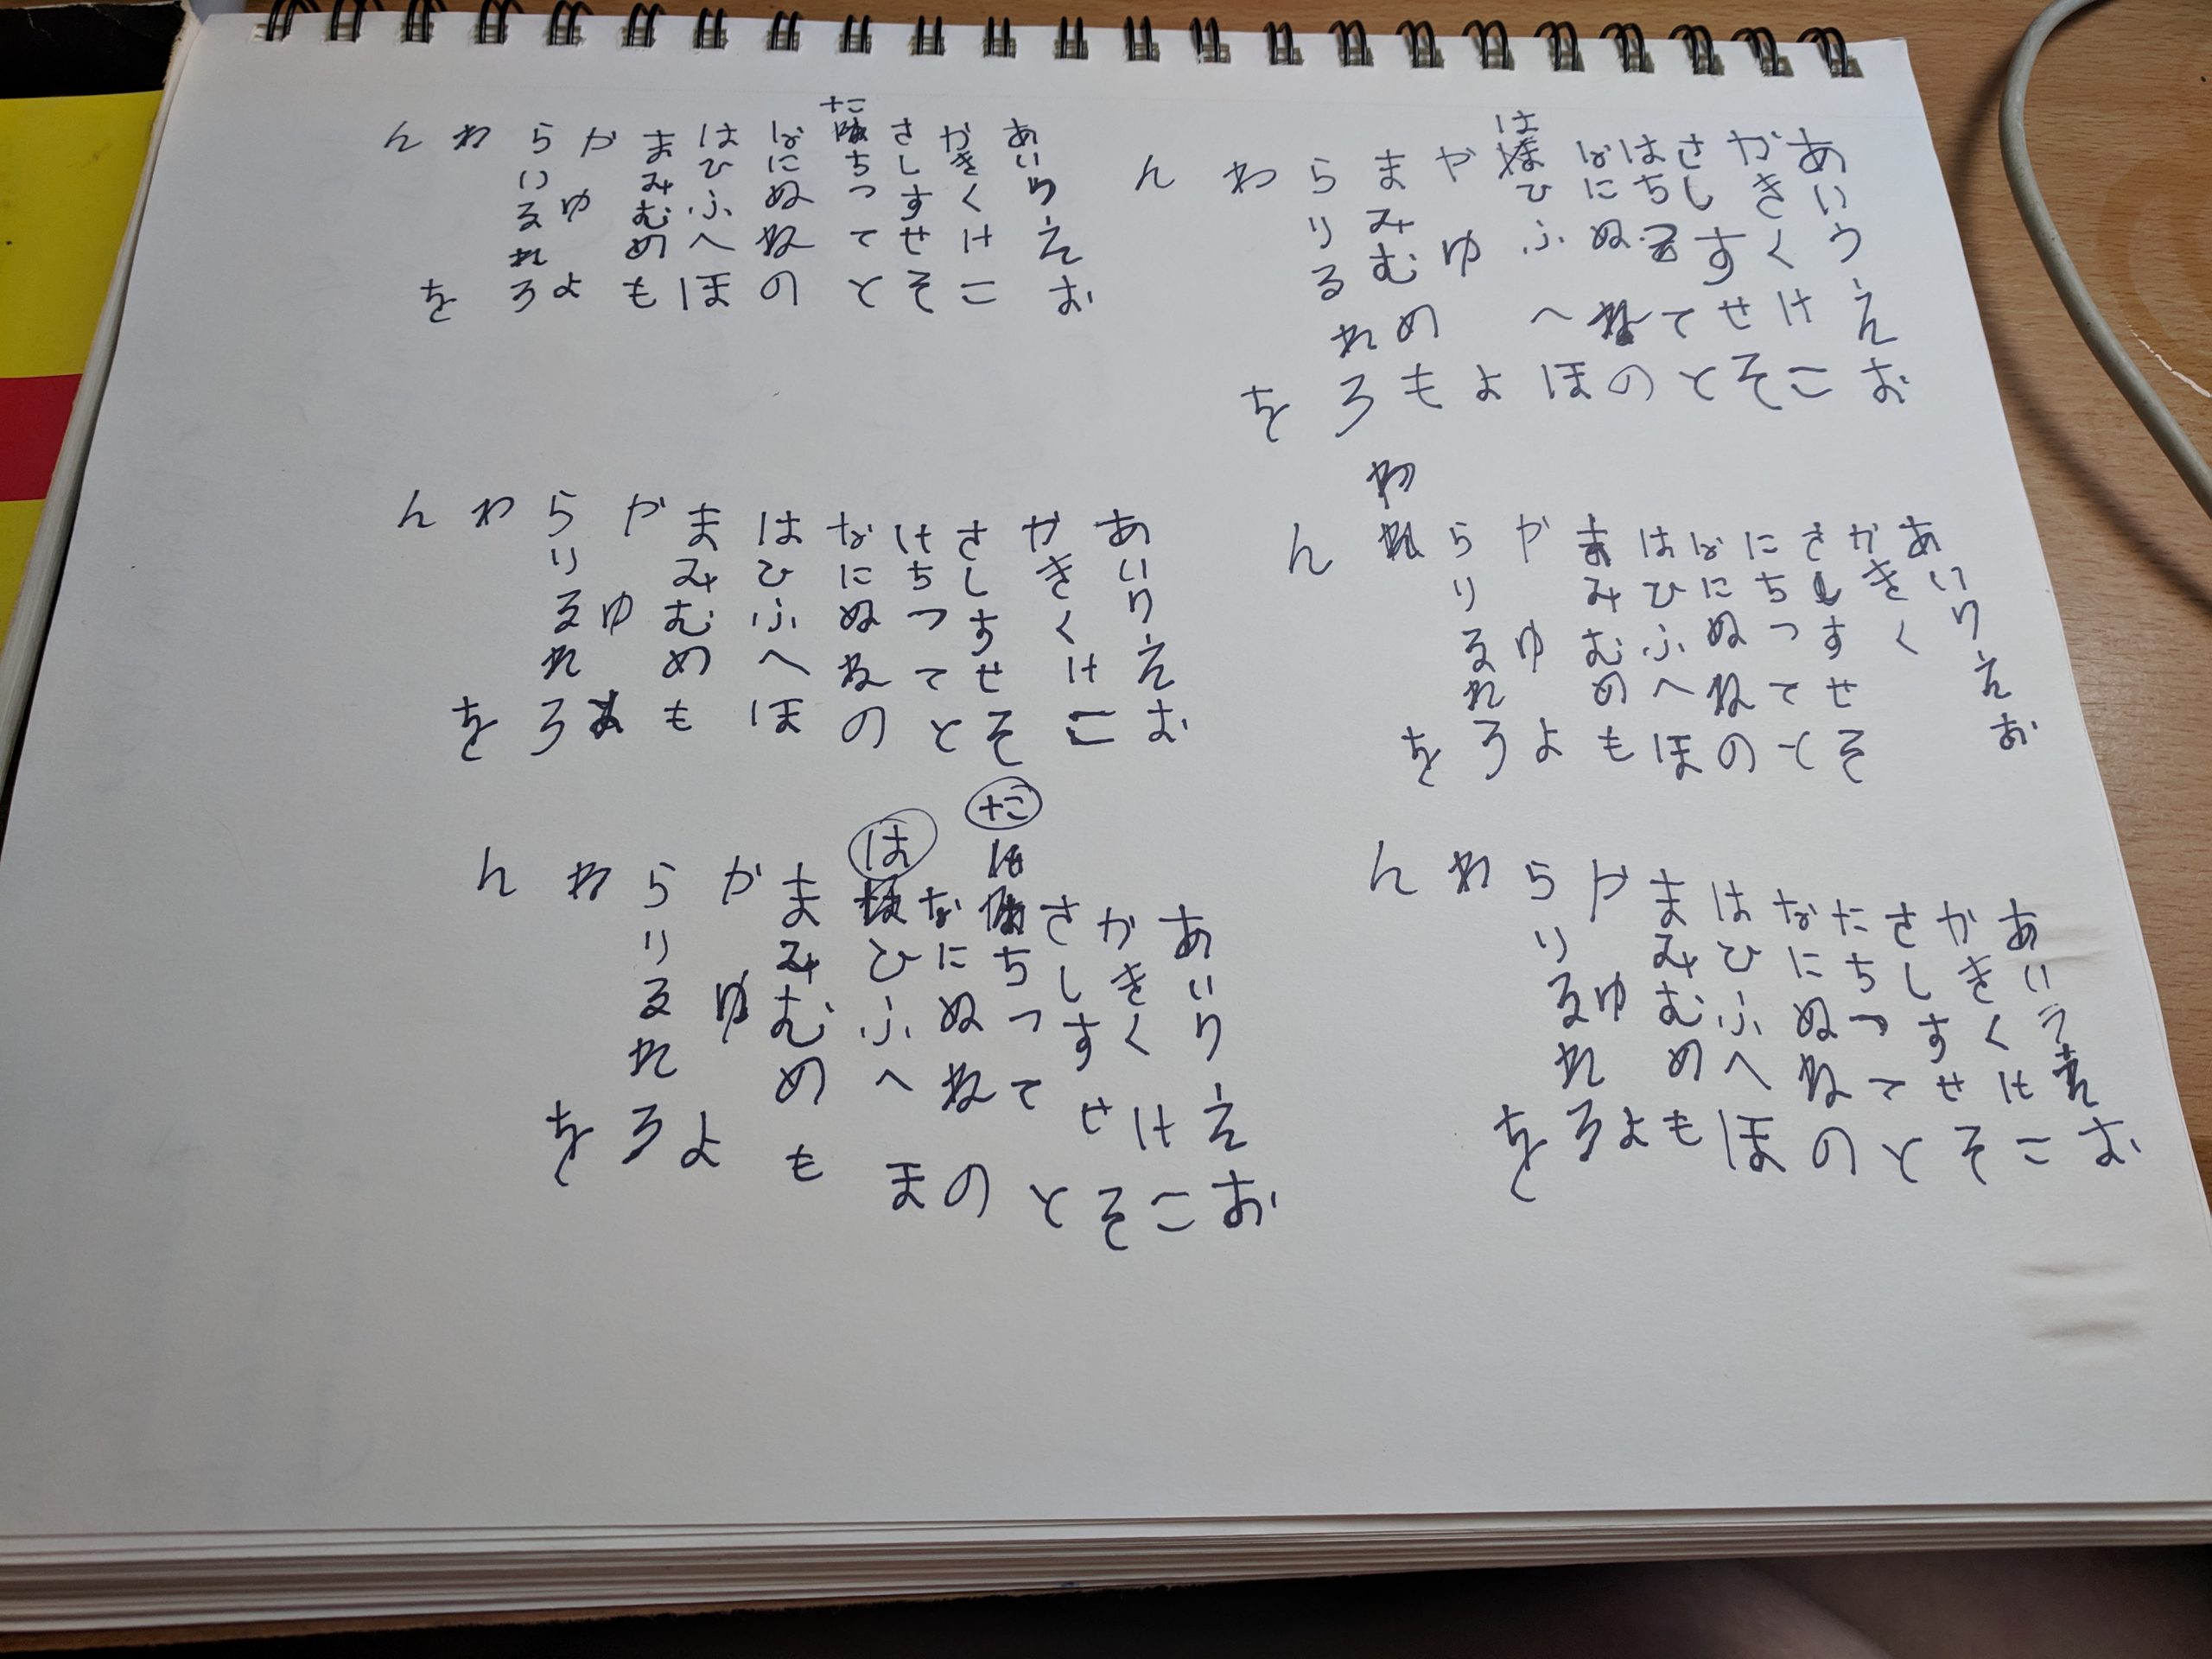 あいうえお
かきくけこ
さしすせそ
はちてと
なにぬねの
はひふへほ
やゆよ
まみむめも
らりるれろ
わを
ん
あいうえお
かきくけこ
さしすせそ
たちつてと
なにぬねの
はひふへほ
まみむめも
やゆよ
らりるれろ
わを
ん
あいうえお
かきく
さしすせそ
にちつてと
なにぬねの
はひふへほ
まみむめも
やゆよ
らりるれろ
わを
ん
あいうえお
かきくけこ
さしすせそ
けちつてと
なにぬねの
はひふへほ
まみむめも
やゆよ
らりるれろ
わを
ん
あいうえお
かきくけこ
さしすせそ
たちつてと
なにぬねの
はひふへほ
まみむめも
やゆよ
らりるれろ
わを
ん
あいうえお
かきくけこ
さしすせそ
たちつてと
なにぬねの
はひふへま
まみむめも
かゆよ
らりるれろ
わを
ん